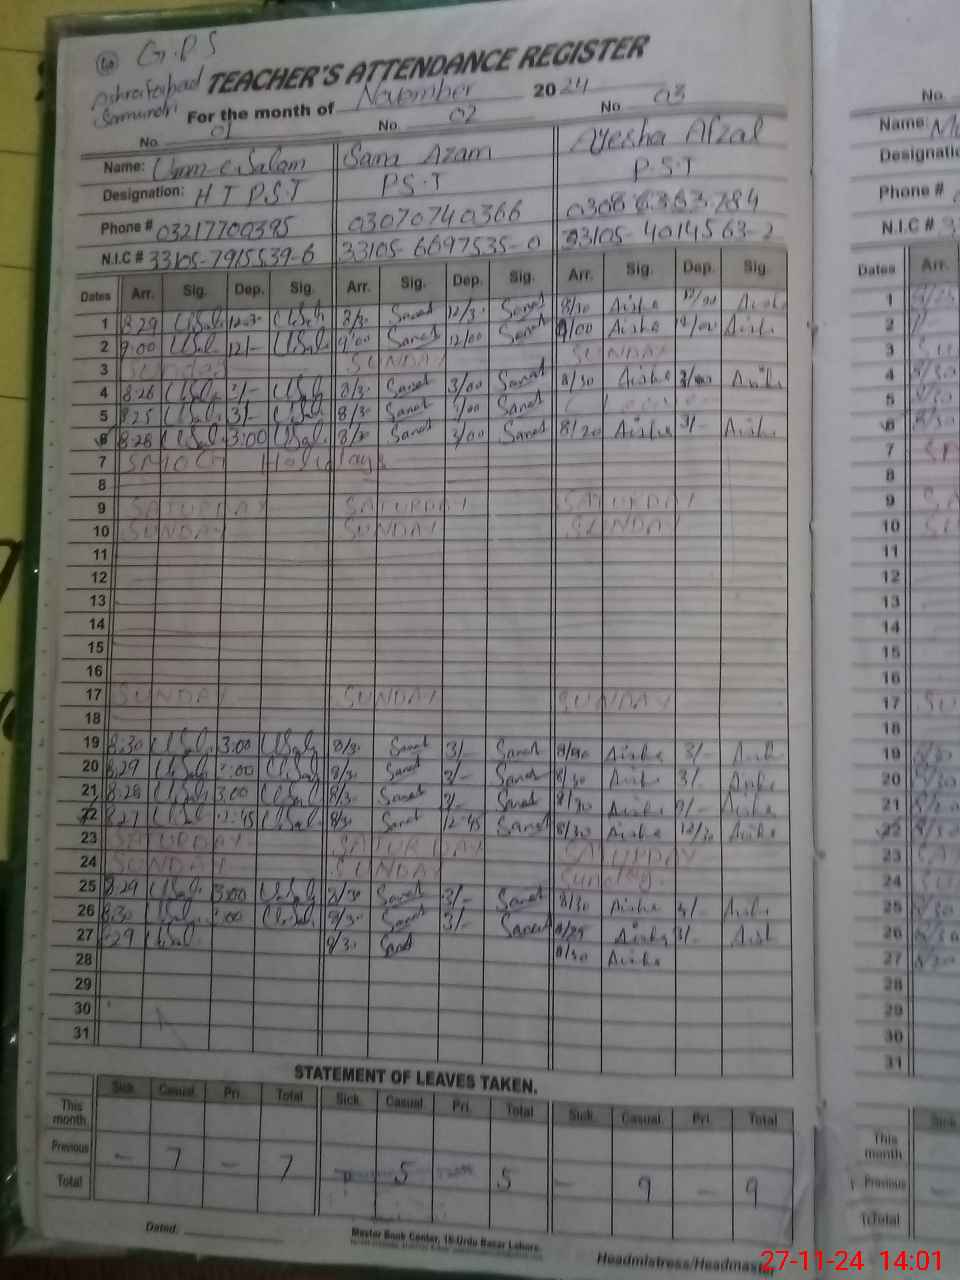 G.P.S
Ashrafabad
Samundri
TEACHER'S ATTENDANCE REGISTER
For the month of November 2024
No. 01 No. 02 No. 03
Name: Umm e Salam Sana Azam Ayesha Afzal
Designation: H T P.S.T P.S.T P.S.T
Phone # 03217700395 03070740366
N.I.C # 33105-7915539-6 33105-6697535-0 33105-4014563-2
Dates Arr. Sig. Dep. Sig. Arr. Sig. Dep. Sig. Arr. Sig. Dep. Sig.
1 8:29 USal 12-3 USal 8/3 Sanat 12/3 Sanat 8/30 Aishe 12/00 Aishe
2 9:00 USal 12/- USal 9:00 Sanat 12/00 Sanat 9/00 Aishe 12/00 Aishe
3 SUNDAY SUNDAY SUNDAY
4 8:28 USal 3/- USal 8/3 Sanat 3/00 Sanat 8/30 Aishe 3/00 Aishe
5 8:25 USal 3/- USal 8/3 Sanat 3/00 Sanat
6 8:28 USal 3:00 USal 8/30 Sanat 3/00 Sanat 8/20 Aishe 3/- Aishe
7 SMOG Holidays
8
9 SATURDAY SATURDAY SATURDAY
10 SUNDAY SUNDAY SUNDAY
11
12
13
14
15
16
17 SUNDAY SUNDAY SUNDAY
18
19 8:30 USal 3:00 USal 8/3 Sanat 3/- Sanat 8/30 Aishe 3/- Aishe
20 8:29 USal 3:00 USal 8/3 Sanat 3/- Sanat 8/30 Aishe 3/- Aishe
21 8:28 USal 3:00 USal 8/3 Sanat 3/- Sanat 8/30 Aishe Aishe
22 8:27 USal 12:45 USal 8/30 Sanat 12:45 Sanat 8/30 Aishe 12/30 Aishe
23 SATURDAY SATURDAY SATURDAY
24 SUNDAY SUNDAY Sunday
25 8:29 USal 3:00 USal 8/30 Sanat 3/- Sanat 8/30 Aishe 3/- Aishe
26 8:30 USal 3:00 USal 8/3 Sanat 3/- Sanat 8/29 Aishe 3/- Aishe
27 8:29 USal 8/3 Sanat 8/30 Aishe
28
29
30
31
STATEMENT OF LEAVES TAKEN.
Sick. Casual. Pri. Total Sick. Casual. Pri. Total Sick. Casual. Pri. Total
This month
Previous - 7 - 7 5 5 - 9 - 9
Total
Dated:
Master Book Center, 18-Urdu Bazar Lahore.
Headmistress/Headmaster
No.
Name:
Designatio
Phone #
N.I.C #
Dates Arr.
1
2
3
4
5
6
7
8
9
10
11
12
13
14
15
16
17
18
19
20
21
22
23
24
25
26
27
28
29
30
31
This month
Previous
Total
27-11-24 14:01